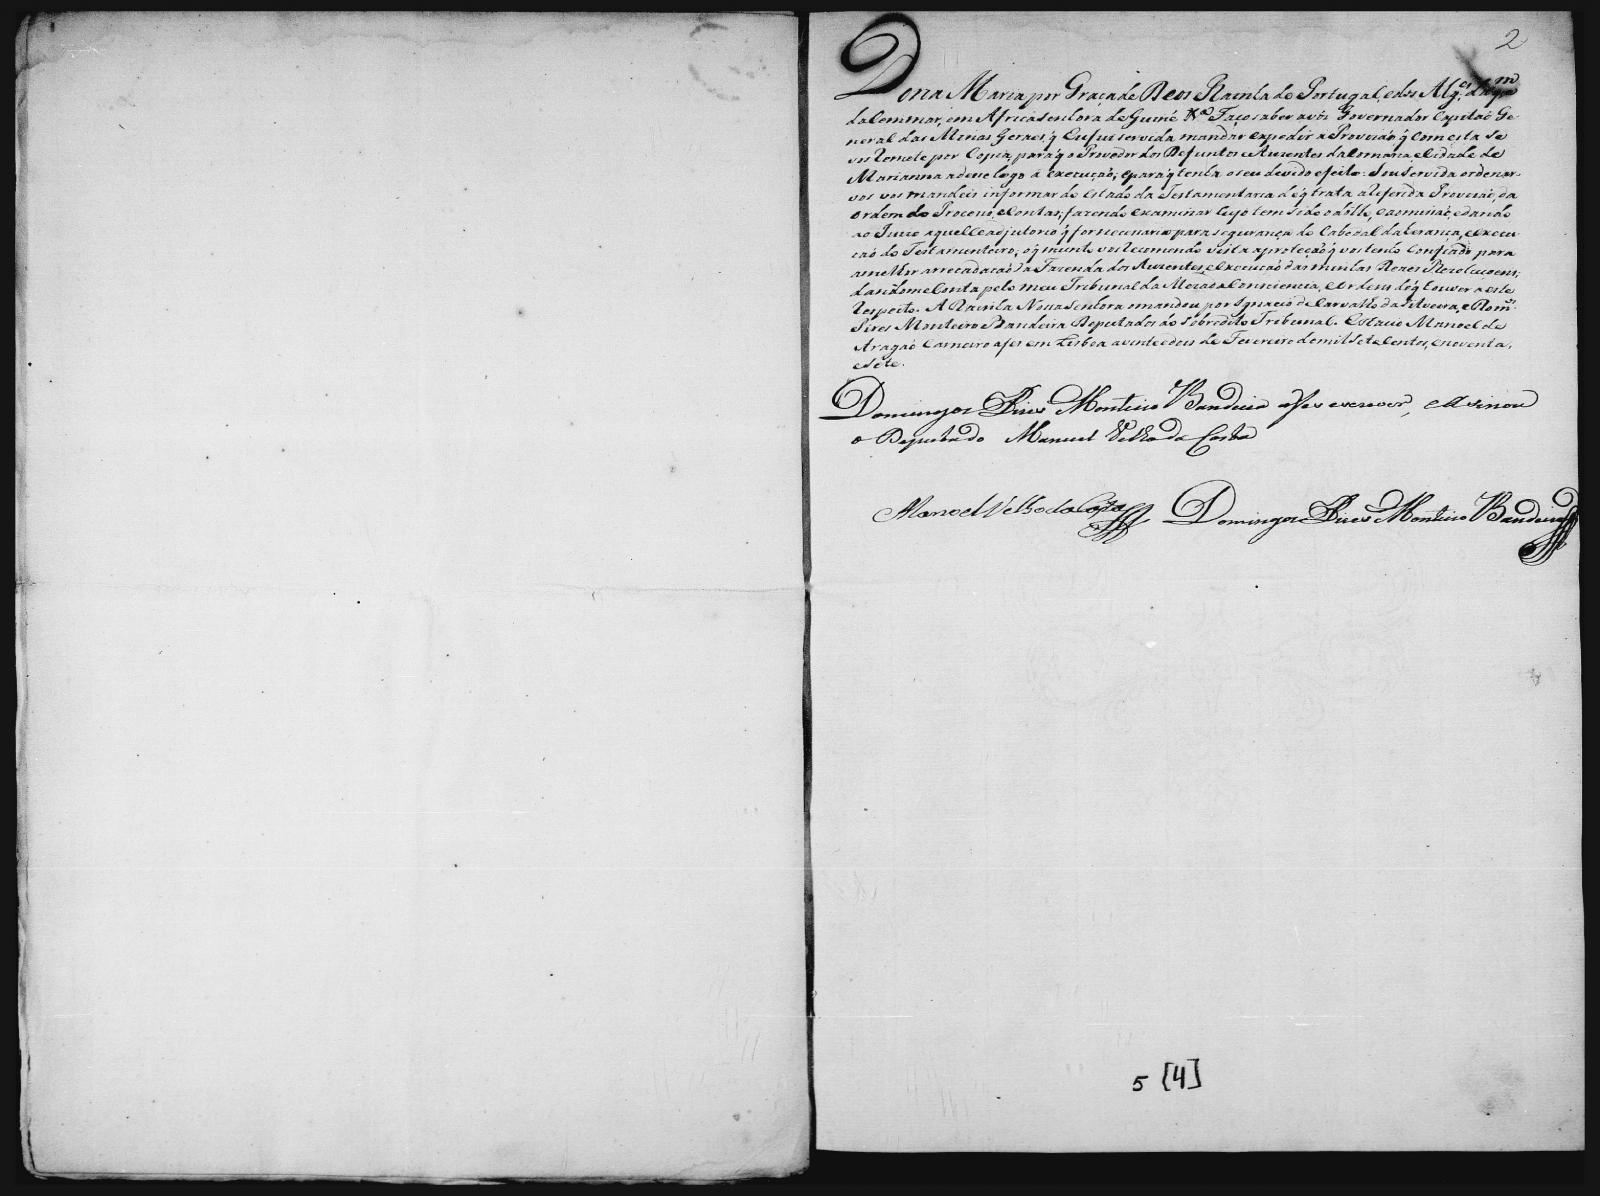 2
Dona Maria por Graça de Deos Rainha de Portugal, e dos Alg.es daq.m
dalem mar, em Africa Senhora de Guiné &.a Faço saber a vós Governador Capitaõ Ge-
neral das Minas Geraes, q̃ Eu fui servida mandar expedir a Provisaõ q̃ com esta se
vos remete por Copia, para q̃ o Provedor dos Defuntos e Auzentes da Comarca, e Cidade de
Marianna a dese logo á execuçaõ; e para q̃ tenha o seu devido efeito: Sou Servida ordenar-
vos vos mandeis informar do estado da Testamentaria de q̃ trata a referida Provisaõ, da
ordem do Processo, e Contas; fazendo examinar cujo tem sido o dollo, e a omissaõ, e dando
ao Juizo aquelle adjutorio q̃ for necessario para segurança do Cabedal da herança, e execu-
çaõ do Testamenteiro; o q̃ muito vos recomendo visto a proteçaõ q̃ vos tenho Confiado para
a melhor arrecadaçaõ da Fazenda dos Auzentes, e execuçaõ das minhas Reaes Rezoluçoens;
dandome Conta pelo meu Tribunal da Meza da Consciencia, e Ordens do q̃ houver a este
respeito. A Rainha Nossa Senhora o mandou por Ignacio de Carvalho da Silveira, e Dom.os
Pires Monteiro Bandeira Deputados do sobredito Tribunal. Estacio Manoel de
Aragaõ Carneiro a fes em Lisboa a vinte e dous de Fevereiro de mil sete Centos, e noventa,
e Sete.
Domingos Pires Monteiro Bandeira a fes escrever, e Assinou
o Deputado Manuel Velho da Costa
Manoel Velho da Costa Domingos Pires Monteiro Bandeira
5 [4]